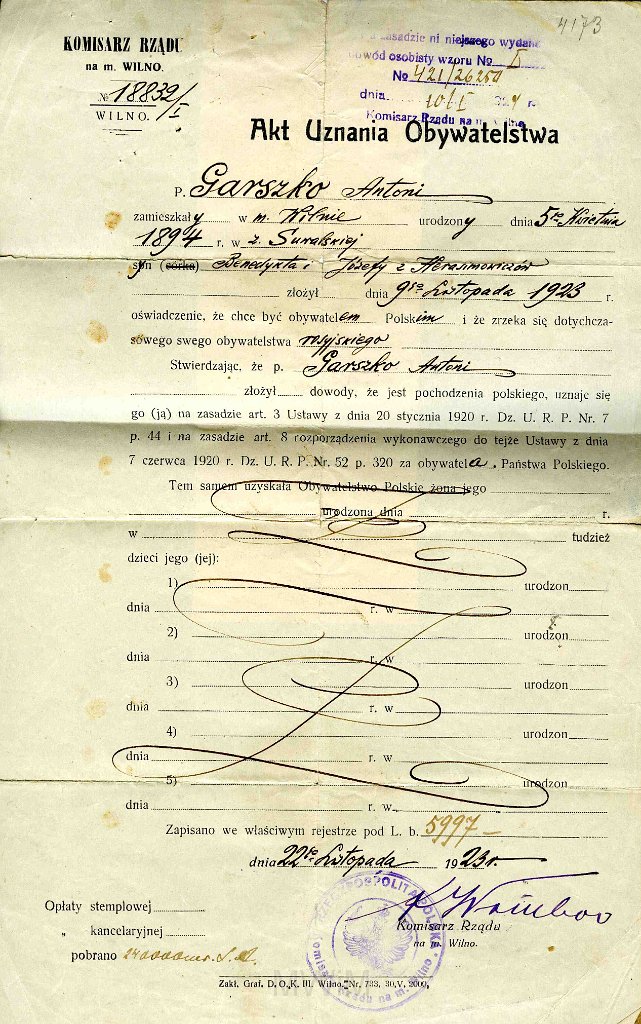 4173
KOMISARZ RZĄDU
na m. WILNO.
№ 18832/I
WILNO.
zasadzie ni niejszego wydano
dowód osobisty wzoru № I
№ 421/26250
dnia 10/I 1924 r.
Komisarz Rządu na m. Wilno
Akt Uznania Obywatelstwa
P. Garszko Antoni
zamieszkały w m. Wilnie urodzony dnia 5go Kwietnia
1894 r. w z. Suralskiej
syn (córka) Benedykta i Józefy z Herasimowiczów
złożył dnia 9go Listopada 1923 r.
oświadczenie, że chce być obywatelem Polskim i że zrzeka się dotychcza-
sowego swego obywatelstwa rosyjskiego
Stwierdzając, że p. Garszko Antoni
złożył dowody, że jest pochodzenia polskiego, uznaje się
go (ją) na zasadzie art. 3 Ustawy z dnia 20 stycznia 1920 r. Dz. U. R. P. Nr. 7
p. 44 i na zasadzie art. 8 rozporządzenia wykonawczego do tejże Ustawy z dnia
7 czerwca 1920 r. Dz. U. R. P. Nr. 52 p. 320 za obywatela. Państwa Polskiego.
Tem samem uzyskała Obywatelstwo Polskie żona jego
urodzona dnia r.
w tudzież
dzieci jego (jej):
1) urodzon
dnia r. w
2) urodzon
dnia r. w
3) urodzon
dnia r. w
4) urodzon
dnia r. w
5) urodzon
dnia r. w
Zapisano we właściwym rejestrze pod L. b. 5997
dnia 22go Listopada 1923 r.
Opłaty stemplowej
„ kancelaryjnej
pobrano
Komisarz Rządu
na m. Wilno.
RZECZPOSPOLITA POLSKA
Komisarz Rządu na m. Wilno
Zakł. Graf. D. O. K. III. Wilno. Nr. 733. 30.V. 2000.